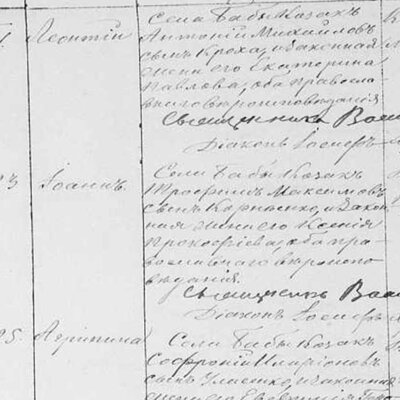 Села Бабы Козакъ
Леонтій
Антоній Михайловъ
сынъ Кроха, и законная
жена его Екатерина
Павлова, оба православ
наго вѣроисповѣданія
Священникъ
Діаконъ Іосифъ
23
Іоаннъ
Села Бабы Козакъ
Трофимъ Максимовъ
сынъ Корніенко, и закон
ная жена его Ксенія
Прокофіева, оба пра
вославнаго вѣроиспо
вѣданія.
Священникъ
Діаконъ Іосифъ
25.
Агрипина
Села Бабы Козакъ
Софроній Иларіоновъ
сынъ и законная
жена его Евфимія